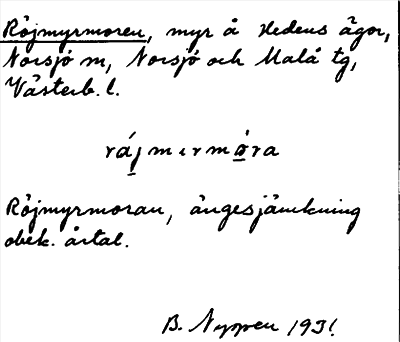 Röjmyrmoren, myr å Hedens ägor,
Norsjö m, Norsjö och Malå tg,
Västerb. l.
råj mırmòra
Röjmyrmoran, ängesjämkning
obek. årtal.
B. Nyppen 1931.